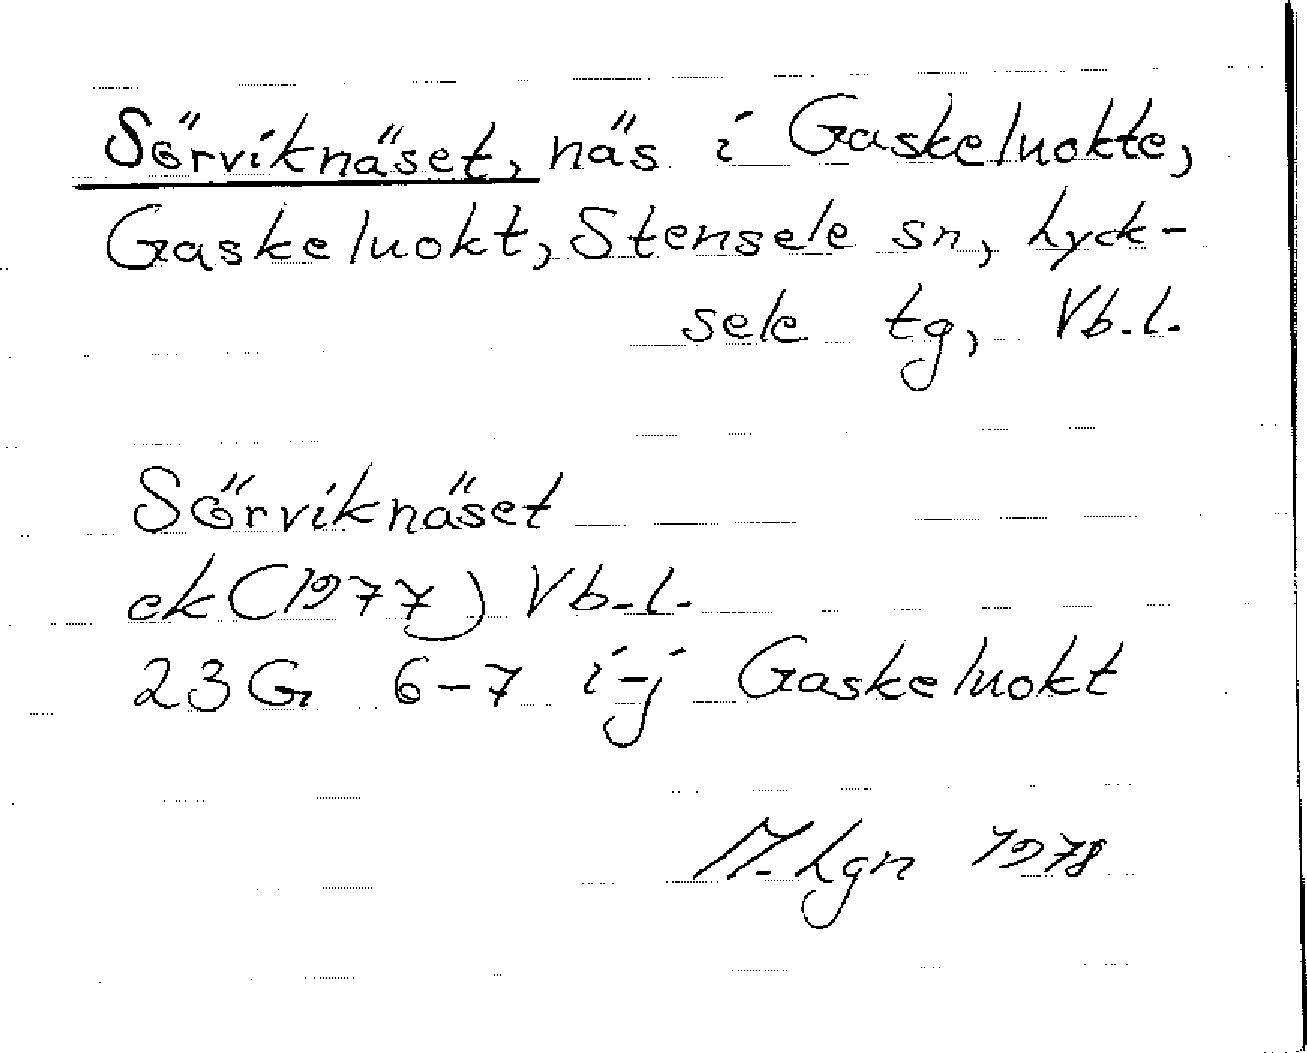 Sörviknäset, näs i Gaskeluokte,
Gaskeluokt, Stensele sn, Lyck-
sele tg, Vb.l.
Sörviknäset
ek (1977) Vb.l.
23G 6-7 i-j Gaskeluokt
M. Lgn 1978